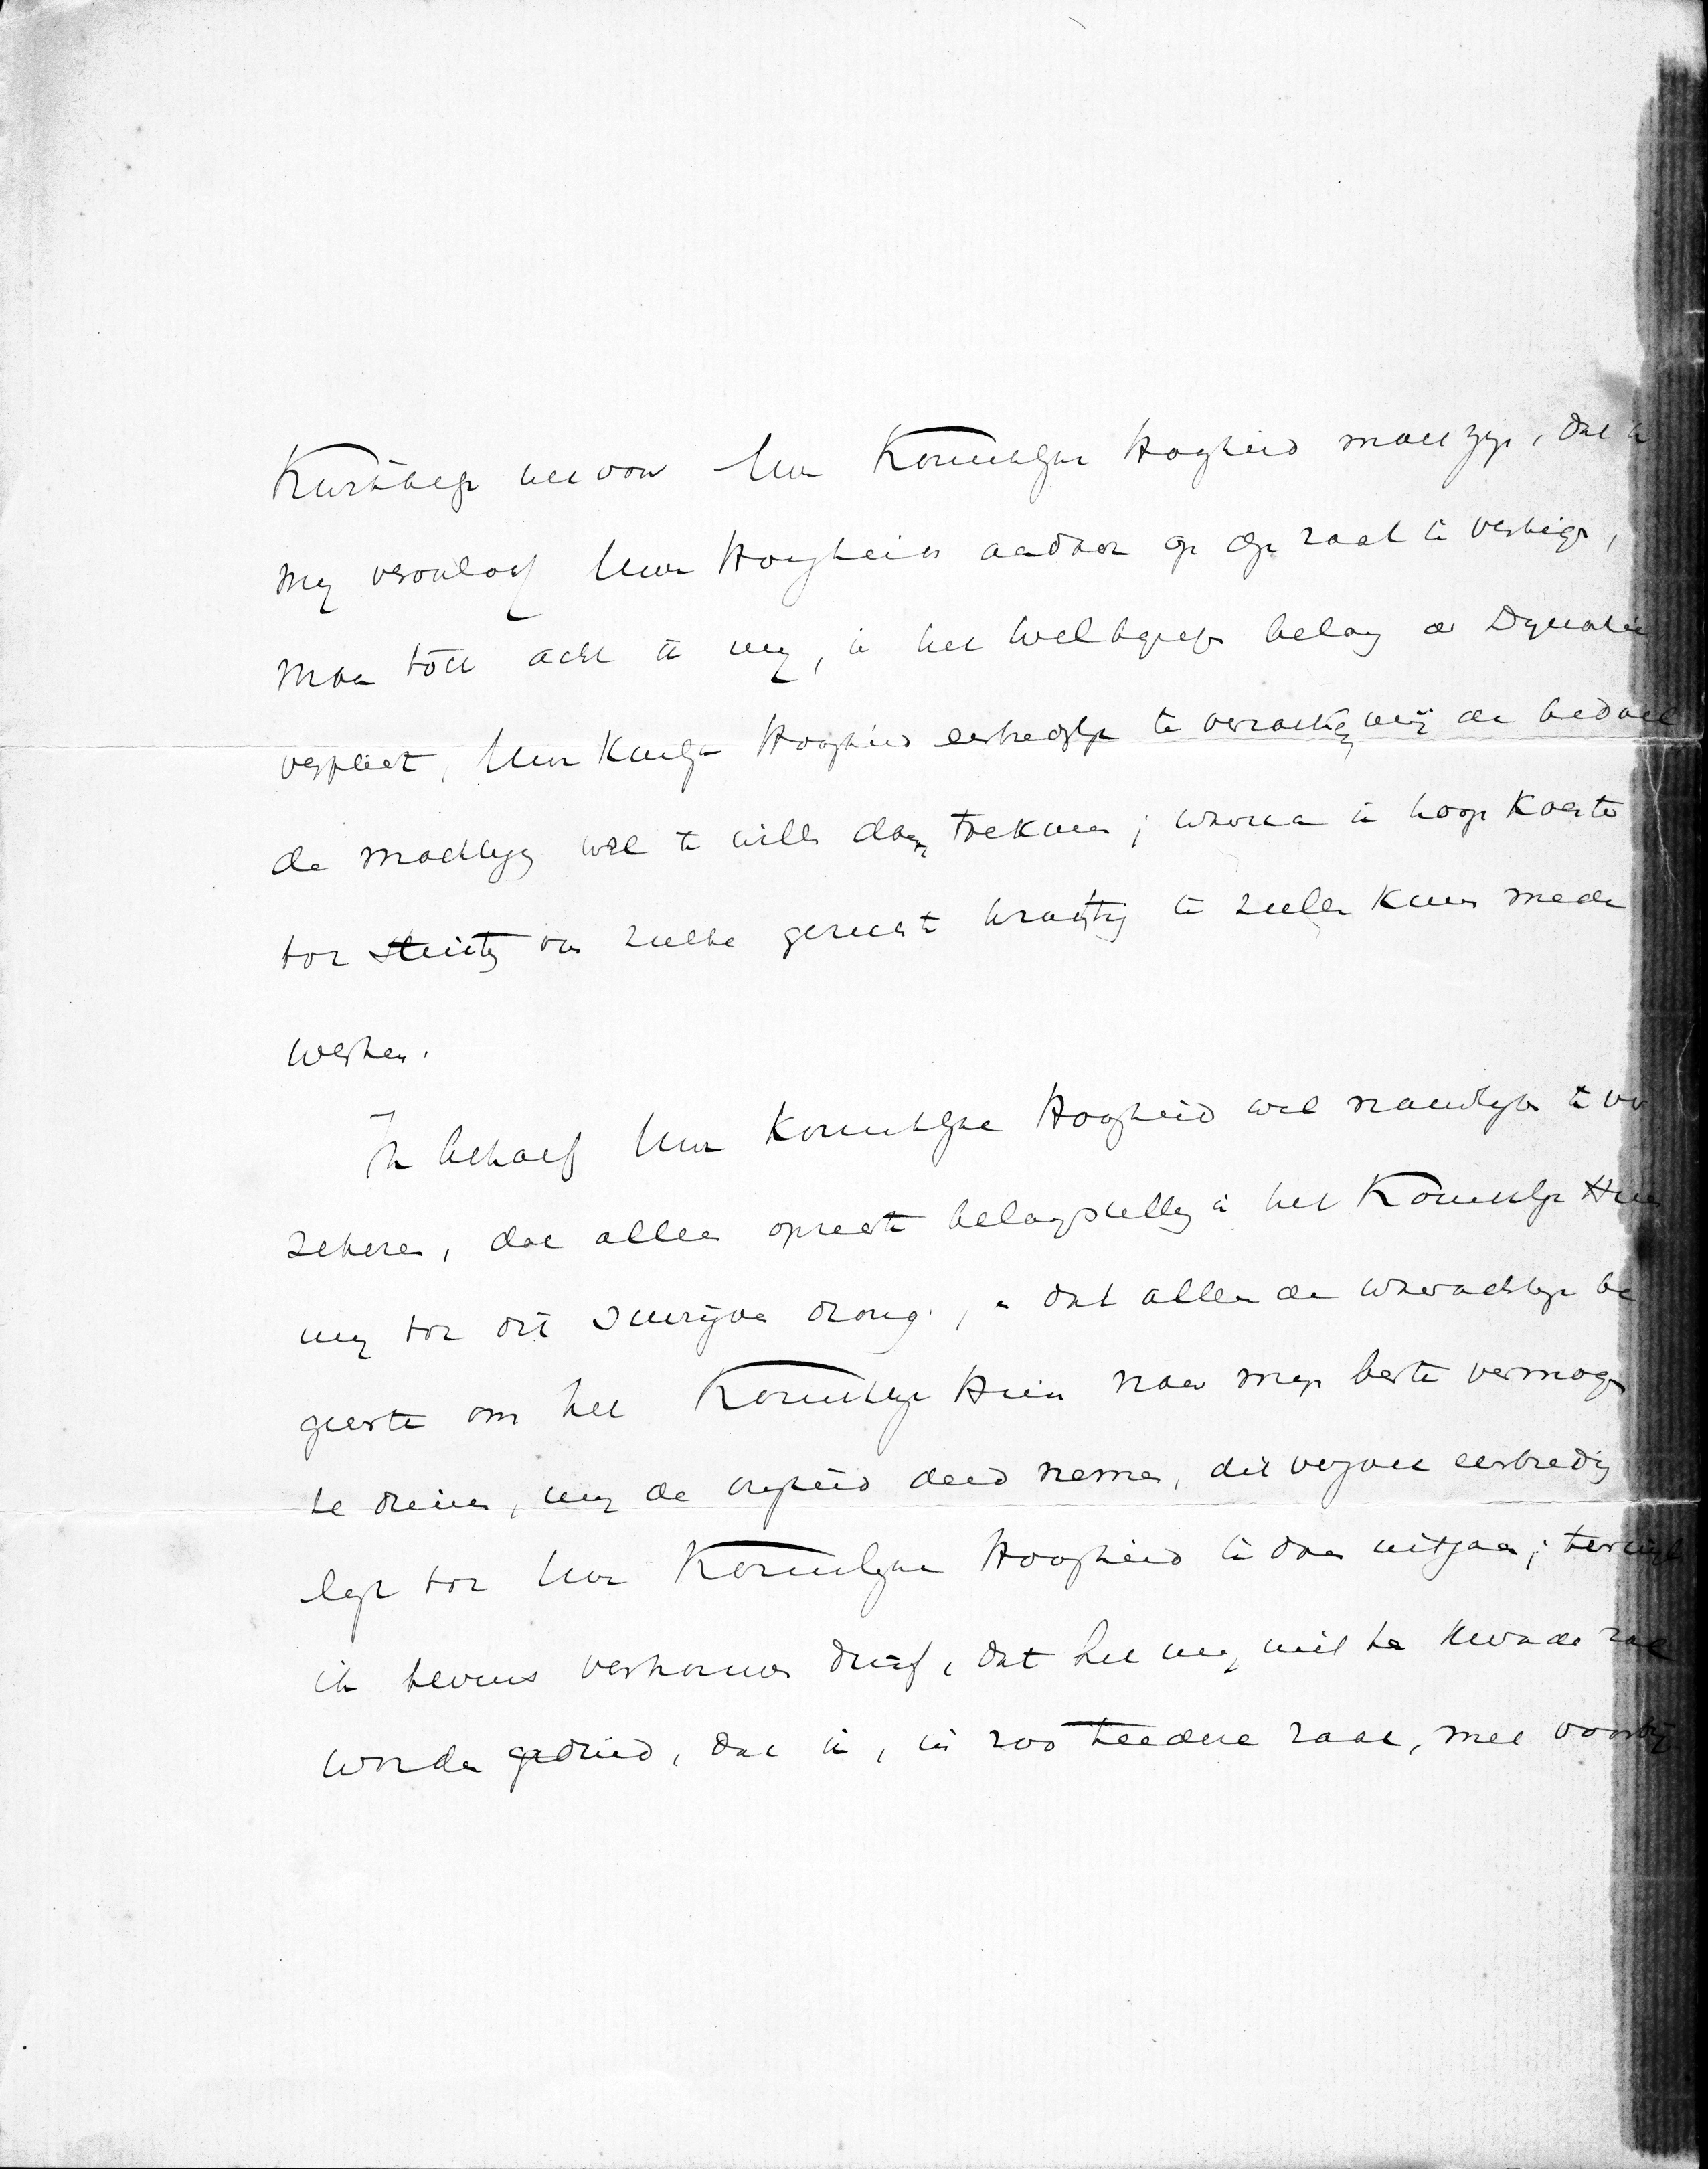 hiervoor Uwe Koninklijke Hoogheid moet zijn, dat ik
mij veroorloof Uwer Hoogheids aandacht op die zaak te vestigen,
Maar toch acht ik mij, in het welbegrepen belang der Dynastie
verplicht, Uwe Kon. Hoogheid eerbiediglijk te verzoeken, mij de bedoel
de machtiging wel te willen doen toekomen; waarna ik hoop Koerten
tot stuiting van zulke geruchten krachtig te zullen kunnen mede
werken.
Ik behoef Uwe Koninklijke Hoogheid wel nauwlijks te ver
zekeren, dat alleen oprechte belangstelling in het Koninklijk Huis
mij tot dit schrijven drong, en dat alleen de waarachtige be
geerte om het Koninklijk Huis naar mijn beste vermogen
te dienen, mij de vrijheid deed nemen, dit verzoek eerbiedig
lijk tot Uwe Koninklijke Hoogheid te doen uitgaan; terwijl
ik tevens vertrouwen durf, dat het mij niet ten kwade zal
worden geduid, dat ik, in zoo teedere zaak, met voorbij